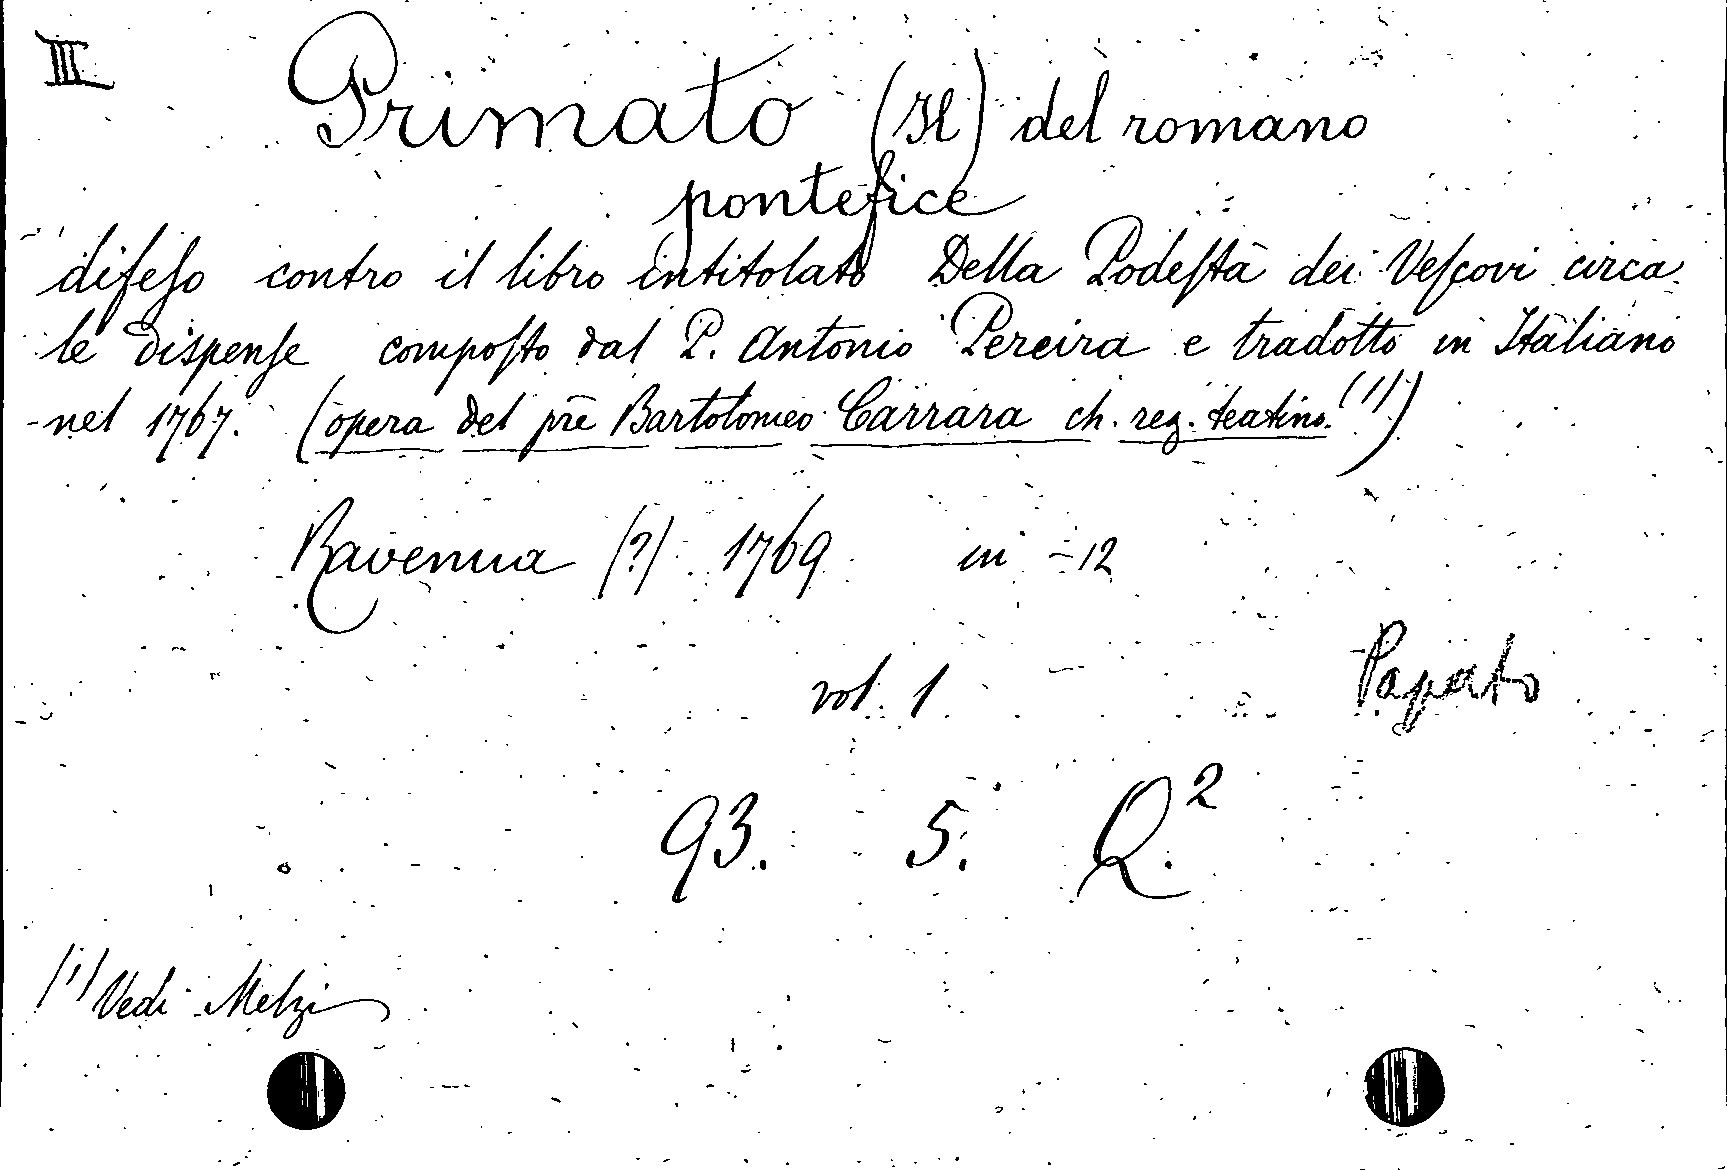 III
Primato (Il) del romano
pontefice
difeſo contro il libro intitolato Della Podeſtà dei Veſcovi circa
le dispenſe compoſto dal P. Antonio Pereira e tradotto in Italiano
nel 1767. (opera del prē Bartolomeo Carrara ch. reg. teatino.(1))
Ravenna (?) 1769 in -12
vol. 1
Papato
93. 5. Q.²
(1) Vedi Melzi